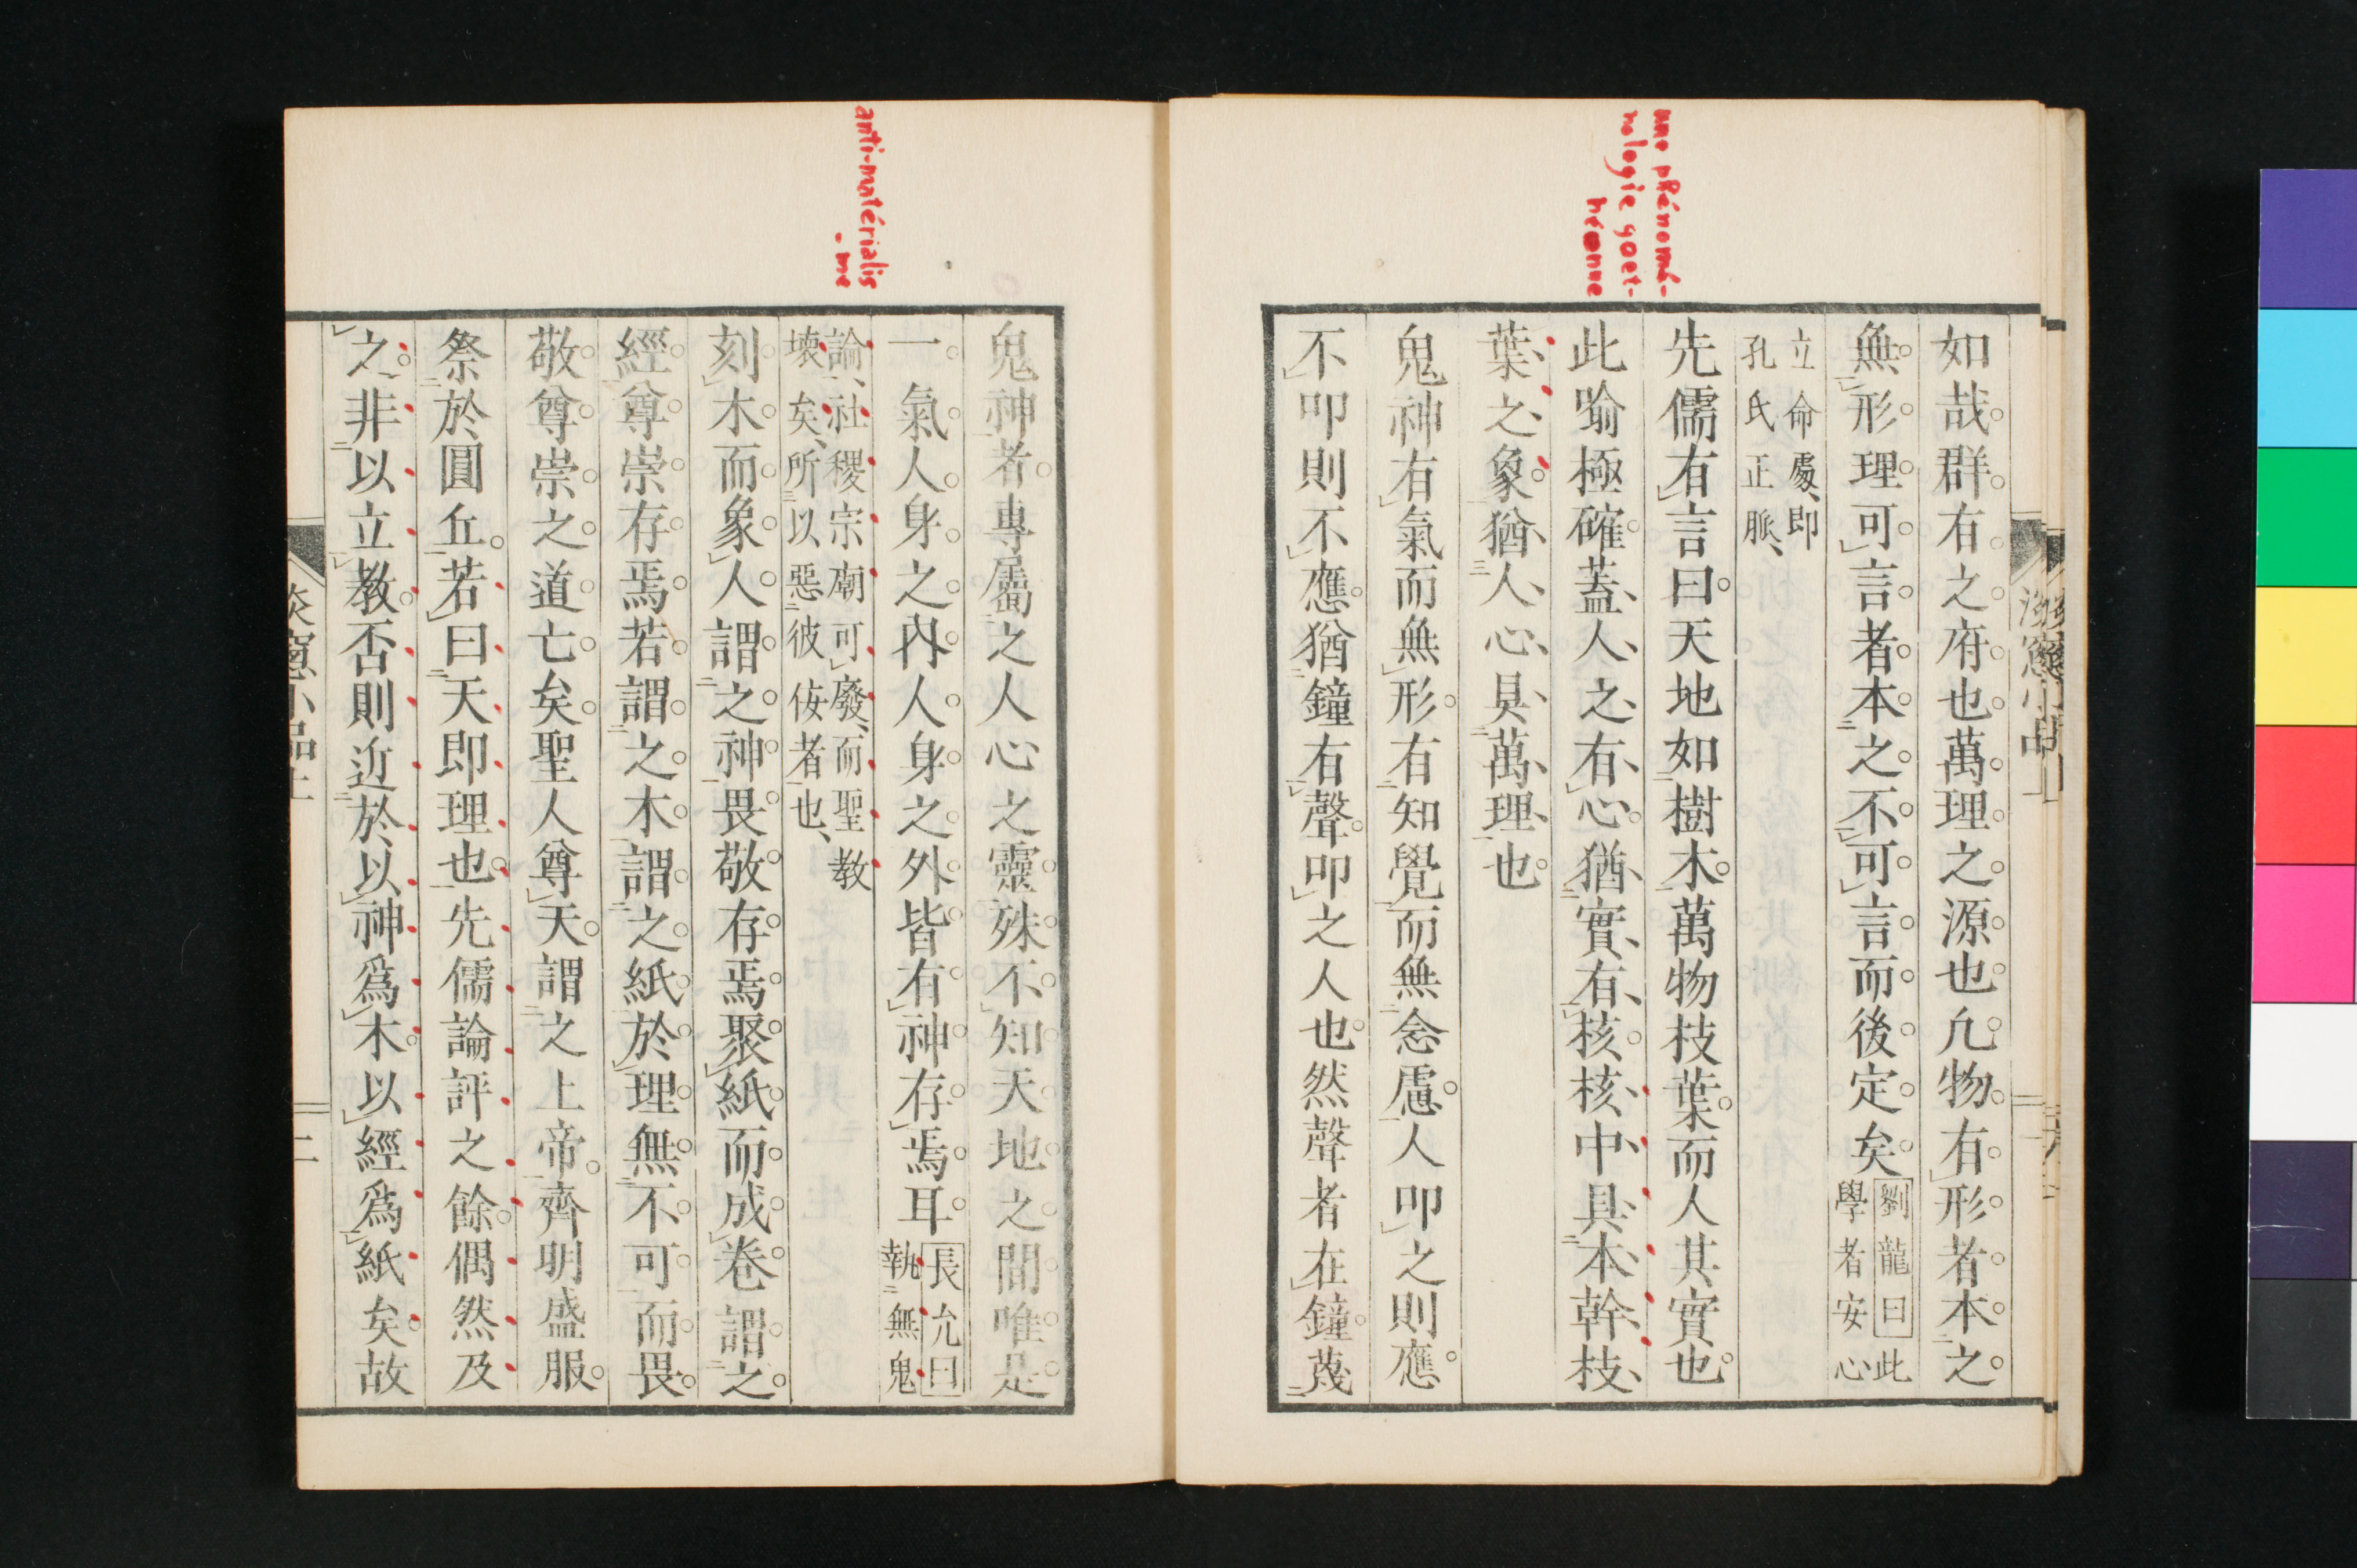 une phénomé-
nologie goet-
héenne
如哉群有之府也萬理之源也凢物有形者本之
無形理可言者本之不可言而後定矣劉龍曰此
學者安心
立命處即
孔氏正脈
先儒有言曰天地如樹木萬物枝葉而人其實也
此喻極確蓋人之有心猶實有核核中具本幹枝
葉之象猶人心具萬理也
鬼神有氣而無形有知覺而無念慮人叩之則應
不叩則不應猶鐘有聲叩之人也然聲者在鐘蔑
anti-matérialis
-me
鬼神者專屬之人心之靈殊不知天地之間唯是
一氣人身之內人身之外皆有神存焉耳長允曰
執無鬼
論社稷宗廟可廢而聖教
壞矣所以惡彼侫者也
刻木而象人謂之神畏敬存焉聚紙而成卷謂之
經尊崇存焉若謂之木謂之紙於理無不可而畏
敬尊崇之道亡矣聖人尊天謂之上帝齊明盛服
祭於圓丘若曰天即理也先儒論評之餘偶然及
之非以立教否則近於以神爲木以經爲紙矣故
窻小品上
二